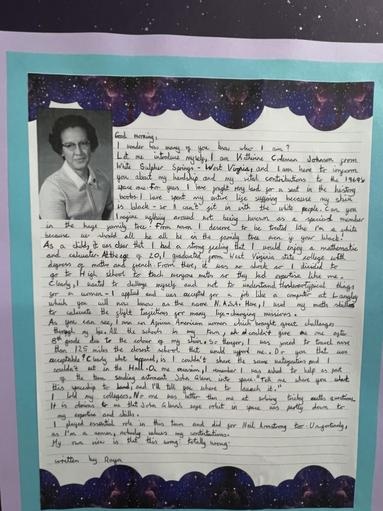 Good morning,
I wonder how many of you know who I am?
Let me introduce myself, I am Katherine Coleman Johnson from
White Sulpher Springs - West Virginia and I am here to inform
you about my hardship and my vital contributions to the 1960's
space race. For years I have fought my lead for a seat in the history
books! I have spent my entire life suffering because my skin
is black - so I can't get in with the white people. Can you
imagine walking around not being known as a special member
in the huge family tree? From now, I deserve to be treated like I'm a white
because we should all be in the family tree even if your black!
As a child, it was clear that I had a strong feeling that I would enjoy a mathematic
and calculater. At the age of 20, I graduated from West Virginia state college with
degrees of maths and french. From there, it was no shock as I decided to
go to High school to teach maths so they had expertise like me.
Clearly, I wanted to challenge myself and not to understand the stereotypical things
for a woman - I applied and was accepted for a job like a computer at Langley
which you will now know as the name N.A.S.A. Here, I used my math skills
to calculate the flight trajectories for many life-changing missions.
As you can see, I am an African American woman which brought great challenges
through my life. All the schools in my town, couldn't give me after
8th grade due to the colour of my skin. So therefore, I was forced to travel more
than 125 miles the closest school that would support me. Do you think that was
acceptable? Clearly what happened is I couldn't share the same and I
couldn't eat in the Hall. On one occasion, I remember I was asked to help as part
of the team sending astronaut John Glenn into space. "Tell me where you want
this spaceship to land, and I'll tell you where to launch it."
I told my collegues. No one was better than me at solving tricky maths
It is obvious to me that John Glenn's in space was partly down to
my expertise and skills.
I played essential role in this team and did for Neil Armstrong too. Unfortunately,
as I'm a woman, nobody values my contributions.
My own view is that this wrong, totally wrong.
written by Roya